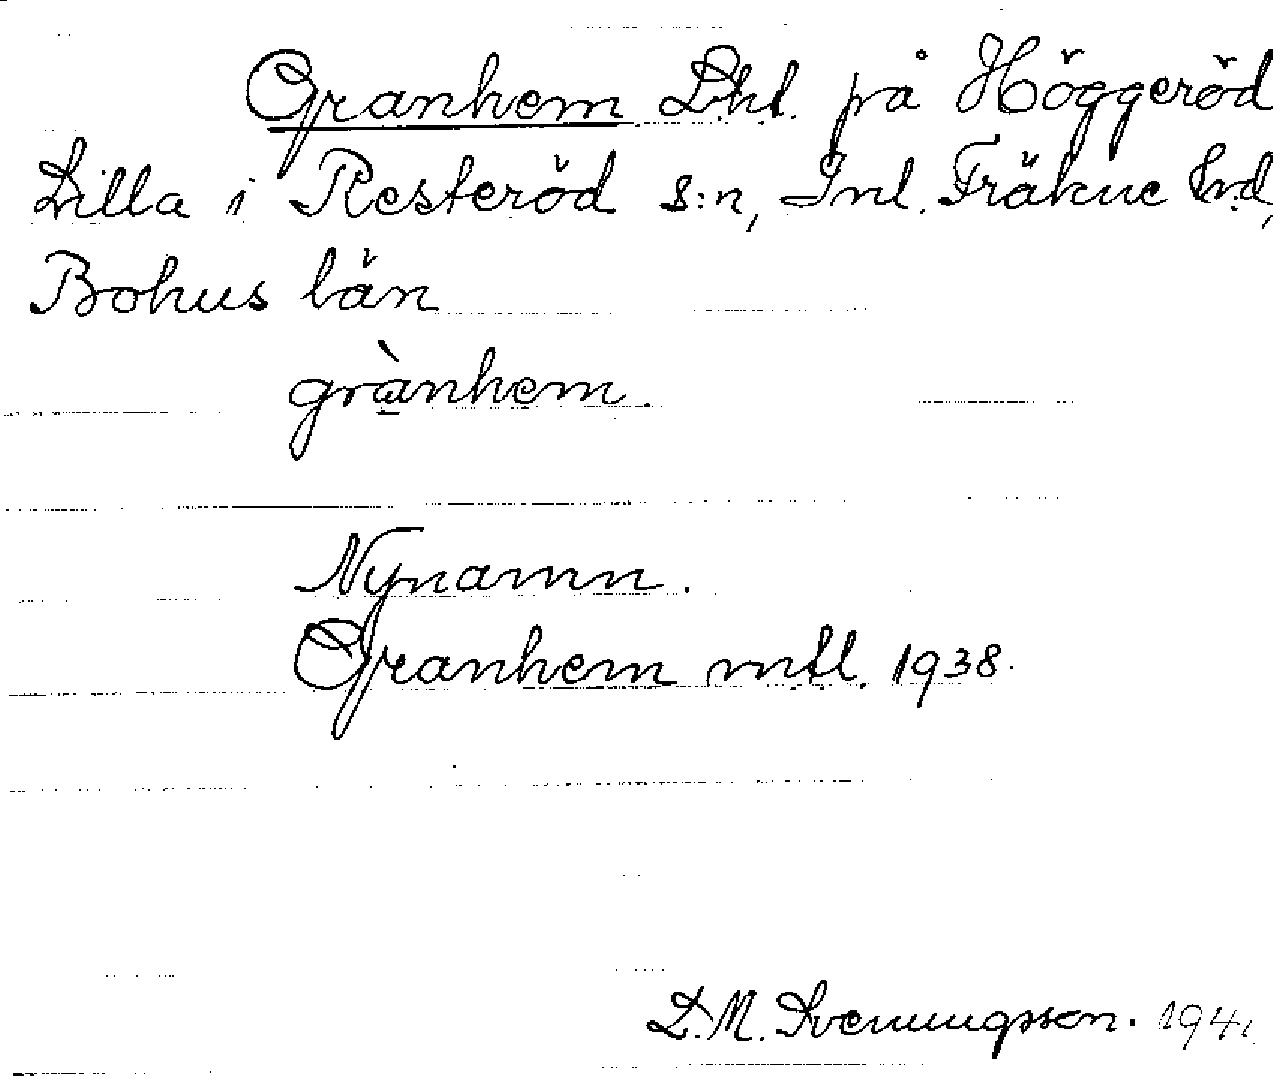 Granhem Lht. på Höggeröd
Lilla i Resteröd s:n, Inl. Fräkne hd,
Bohus län
grànhem.
Nynamn.
Granhem mtl. 1938.
L. M. Svenungsson. 1941